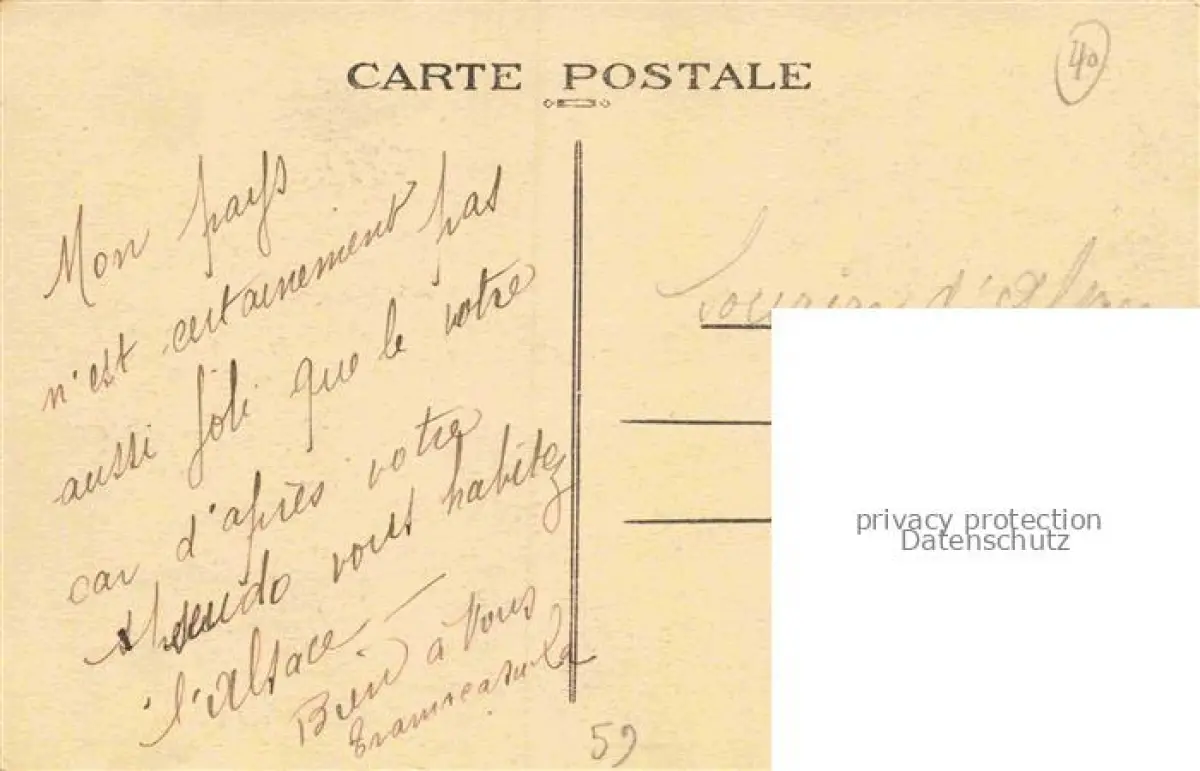 CARTE POSTALE
40
Mon pays
n'est certainement pas
aussi joli que le votre
car d'après votre
pseudo vous habitez
l'Alsace —
Bien à Vous
59
d'Alsace
privacy protection
Datenschutz